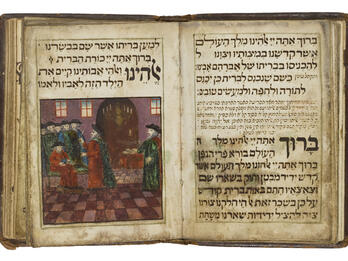 ברוך אתה יי אלהינו מלך העולם
אשר קדשנו במצותיו וצונו
להכניסו בבריתו של אברהם אבינו
כשם שנכנס לברית כן יכנס
לתורה ולחפה ולמעשים טובים:
ברוך אתה יי אלהינו מלך ה
העולם בורא פרי הגפן
ברוך אתה יי אלהינו מלך העולם אשר
קדש ידיד מבטן וחוק בשארו שם
וצאצאיו חתם באות ברית קודש
על כן בשכר זאת אל חי חלקנו צורנו
צוה להציל ידידות שארנו משחת
למען בריתו אשר שם בבשרנו
ברוך אתה יי כורת הברית
אלהינו ואלהי אבותינו קיים את
הילד הזה לאביו ולאמו